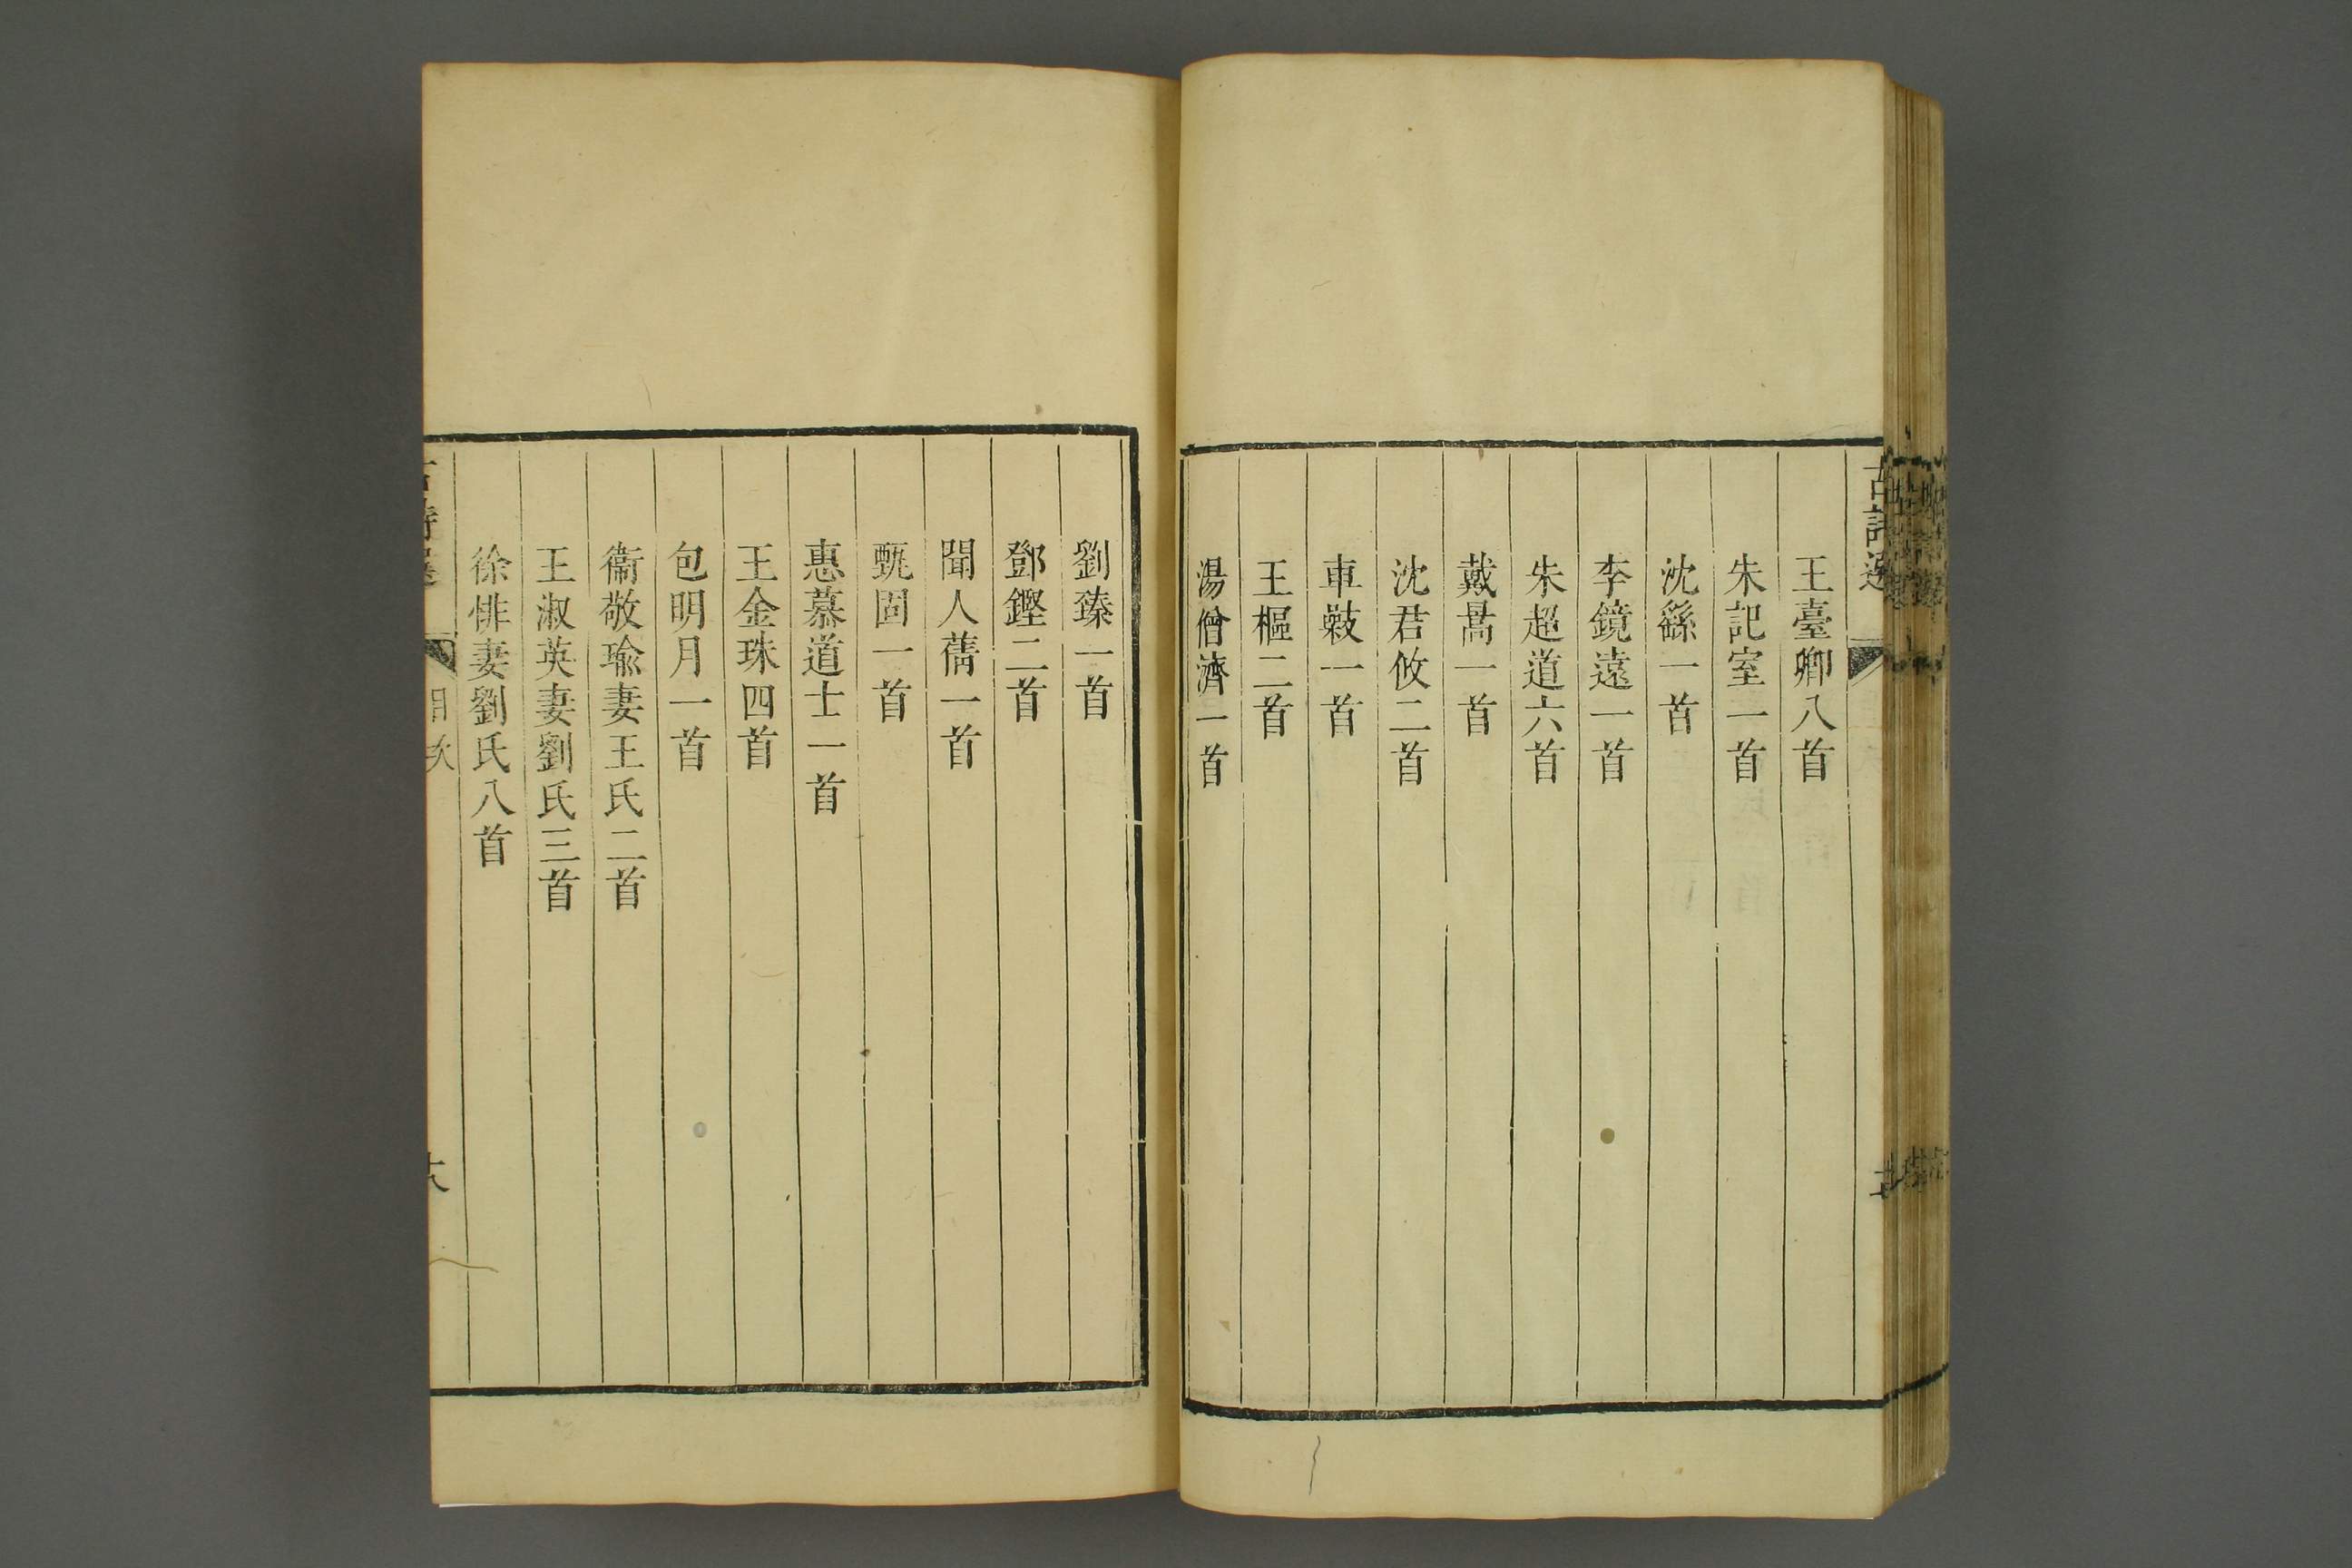 古詩選
王臺卿八首
朱記室一首
沈繇一首
李鏡遠一首
朱超道六首
戴暠一首
沈君攸二首
車𣀈一首
王樞二首
湯僧濟一首
劉臻一首
鄧鏗二首
聞人蒨一首
甄固一首
惠慕道士一首
王金珠四首
包明月一首
衞敬瑜妻王氏二首
王淑英妻劉氏三首
徐悱妻劉氏八首
古詩選
目次